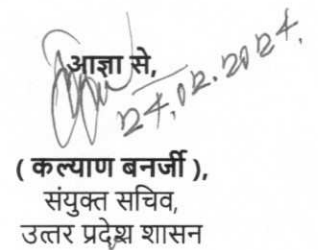 आज्ञा से,
24.02.2024.
( कल्याण बनर्जी ),
संयुक्त सचिव,
उत्तर प्रदेश शासन